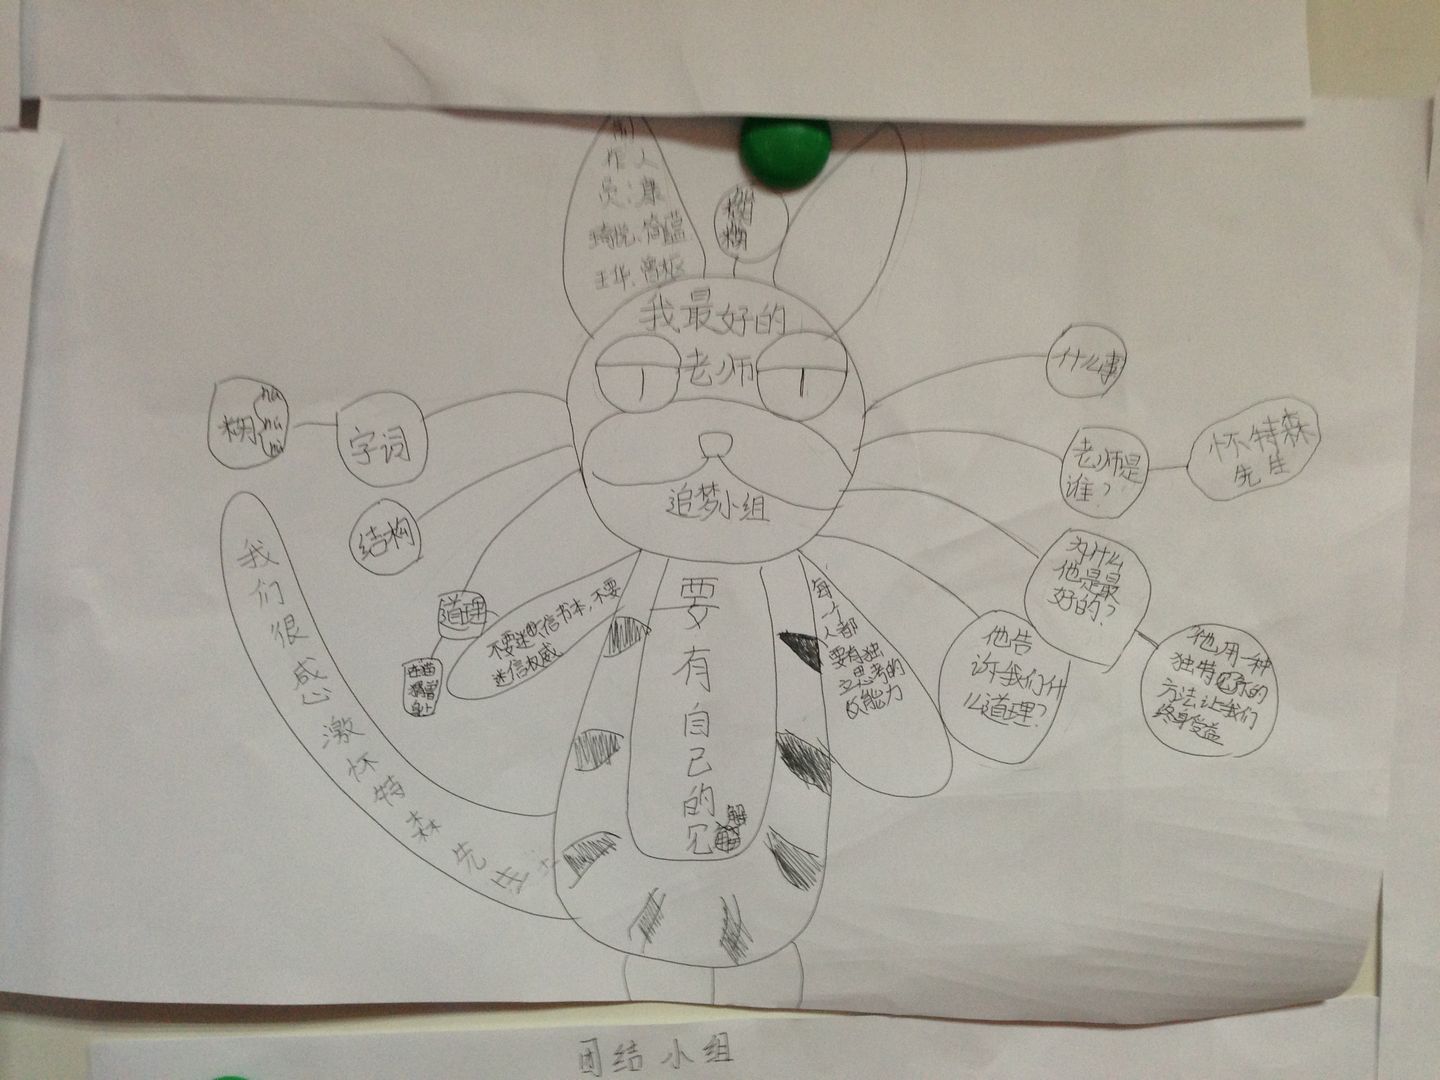 制
作人
员：康
琦悦、简蕴
王华、曹柩
糊
我最好的
老师
追梦小组
什么事
老师是
谁？
怀特森
先生
为什么
他是最
好的？
他用一种
独特的
方法让我们
终身受益
他告
诉我们什
么道理？
字词
糊
结构
道理
不要迷信书本,不要
迷信权威
每
一个
人都
要有独
立思考的
能力
要
有
自
己
的
见
解
我
们
很
感
激
怀
特
森
先
生
团结小组